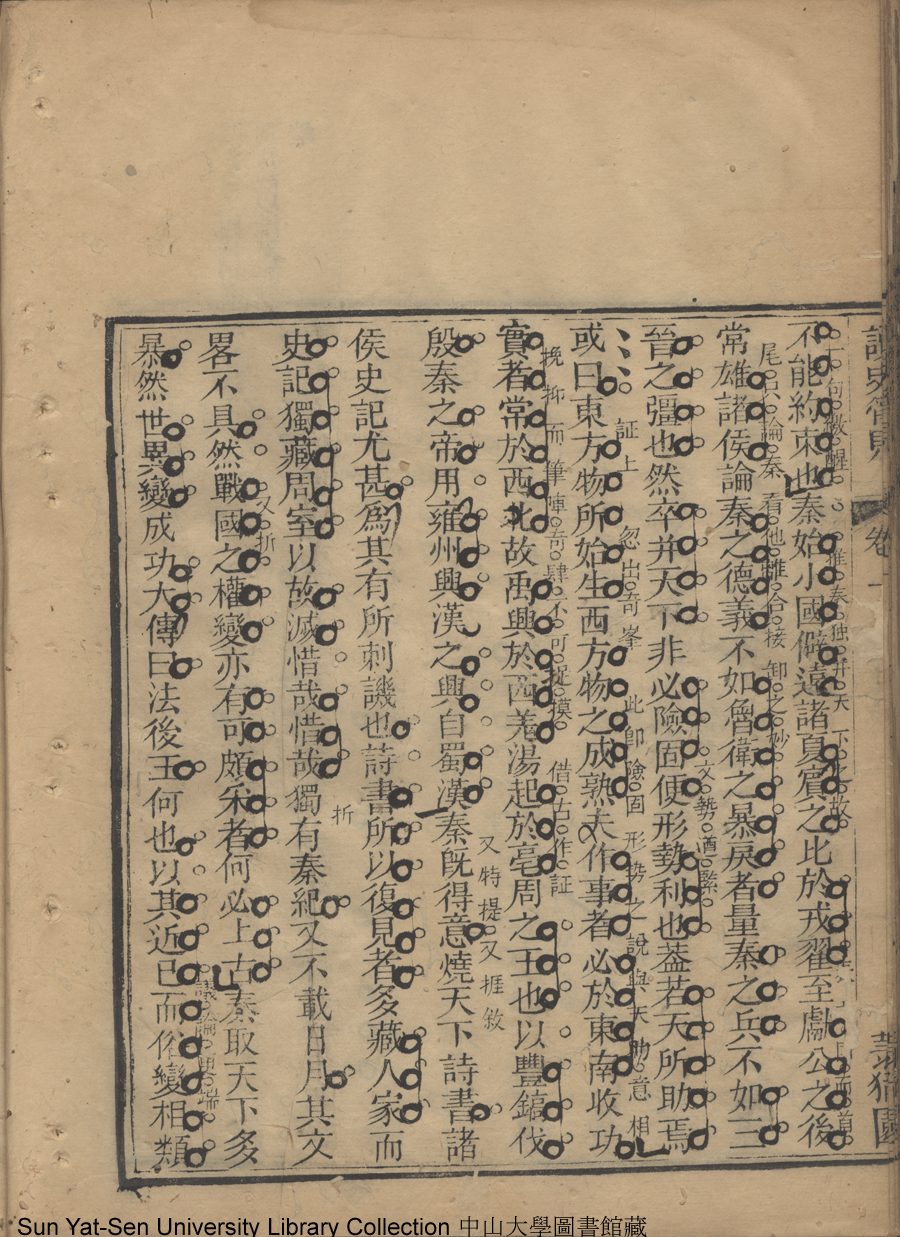 讀史管見 卷一
不能約束也秦始小國僻遠諸夏賓之比於戎翟至獻公之後
常雄諸侯論秦之德義不如魯衛之暴戾者量秦之兵不如三
晉之彊也然卒并天下非必險固便形勢利也葢若天所助焉
或曰東方物所始生西方物之成熟夫作事者必於東南收功
實者常於西北故禹興於西羌湯起於亳周之王也以豐鎬伐
殷秦之帝用雍州興漢之興自蜀漢秦旣得意燒天下詩書諸
侯史記尤甚爲其有所刺譏也詩書所以復見者多藏人家而
史記獨藏周室以故滅惜哉惜哉獨有秦紀又不載日月其文
畧不具然戰國之權變亦有可頗采者何必上古秦取天下多
暴然世異變成功大傳曰法後王何也以其近己而俗變相類
句激醒
惟秦独并天下故
尾只論秦
看他雖合接卸之妙
文勢遒緊
証上
忽出奇峯
此卽險固形勢之說與天助意相
挽抑而筆陣奇肆不可捉摸
借古作証
又特提
又捱敘
折
又折
議論更端
Sun Yat-Sen University Library Collection 中山大學圖書館藏